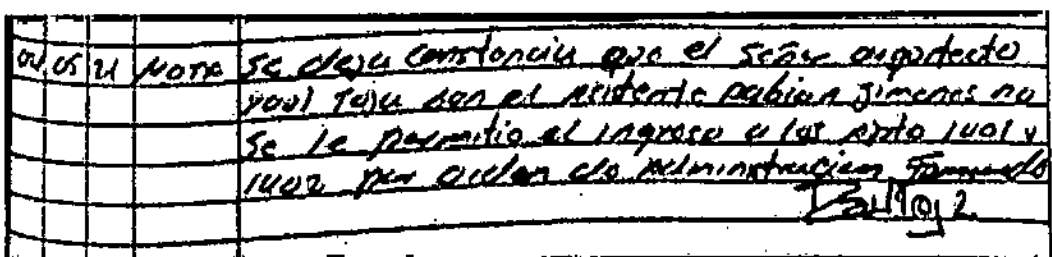 04 05 21 Nota Se deja constancia que el Señor arquitecto
Yool Teju con el recidente Fabian Jimenes no
Se le permitio el ingreso a los apto 1401 y
1402 por orden de Administracion Fernando